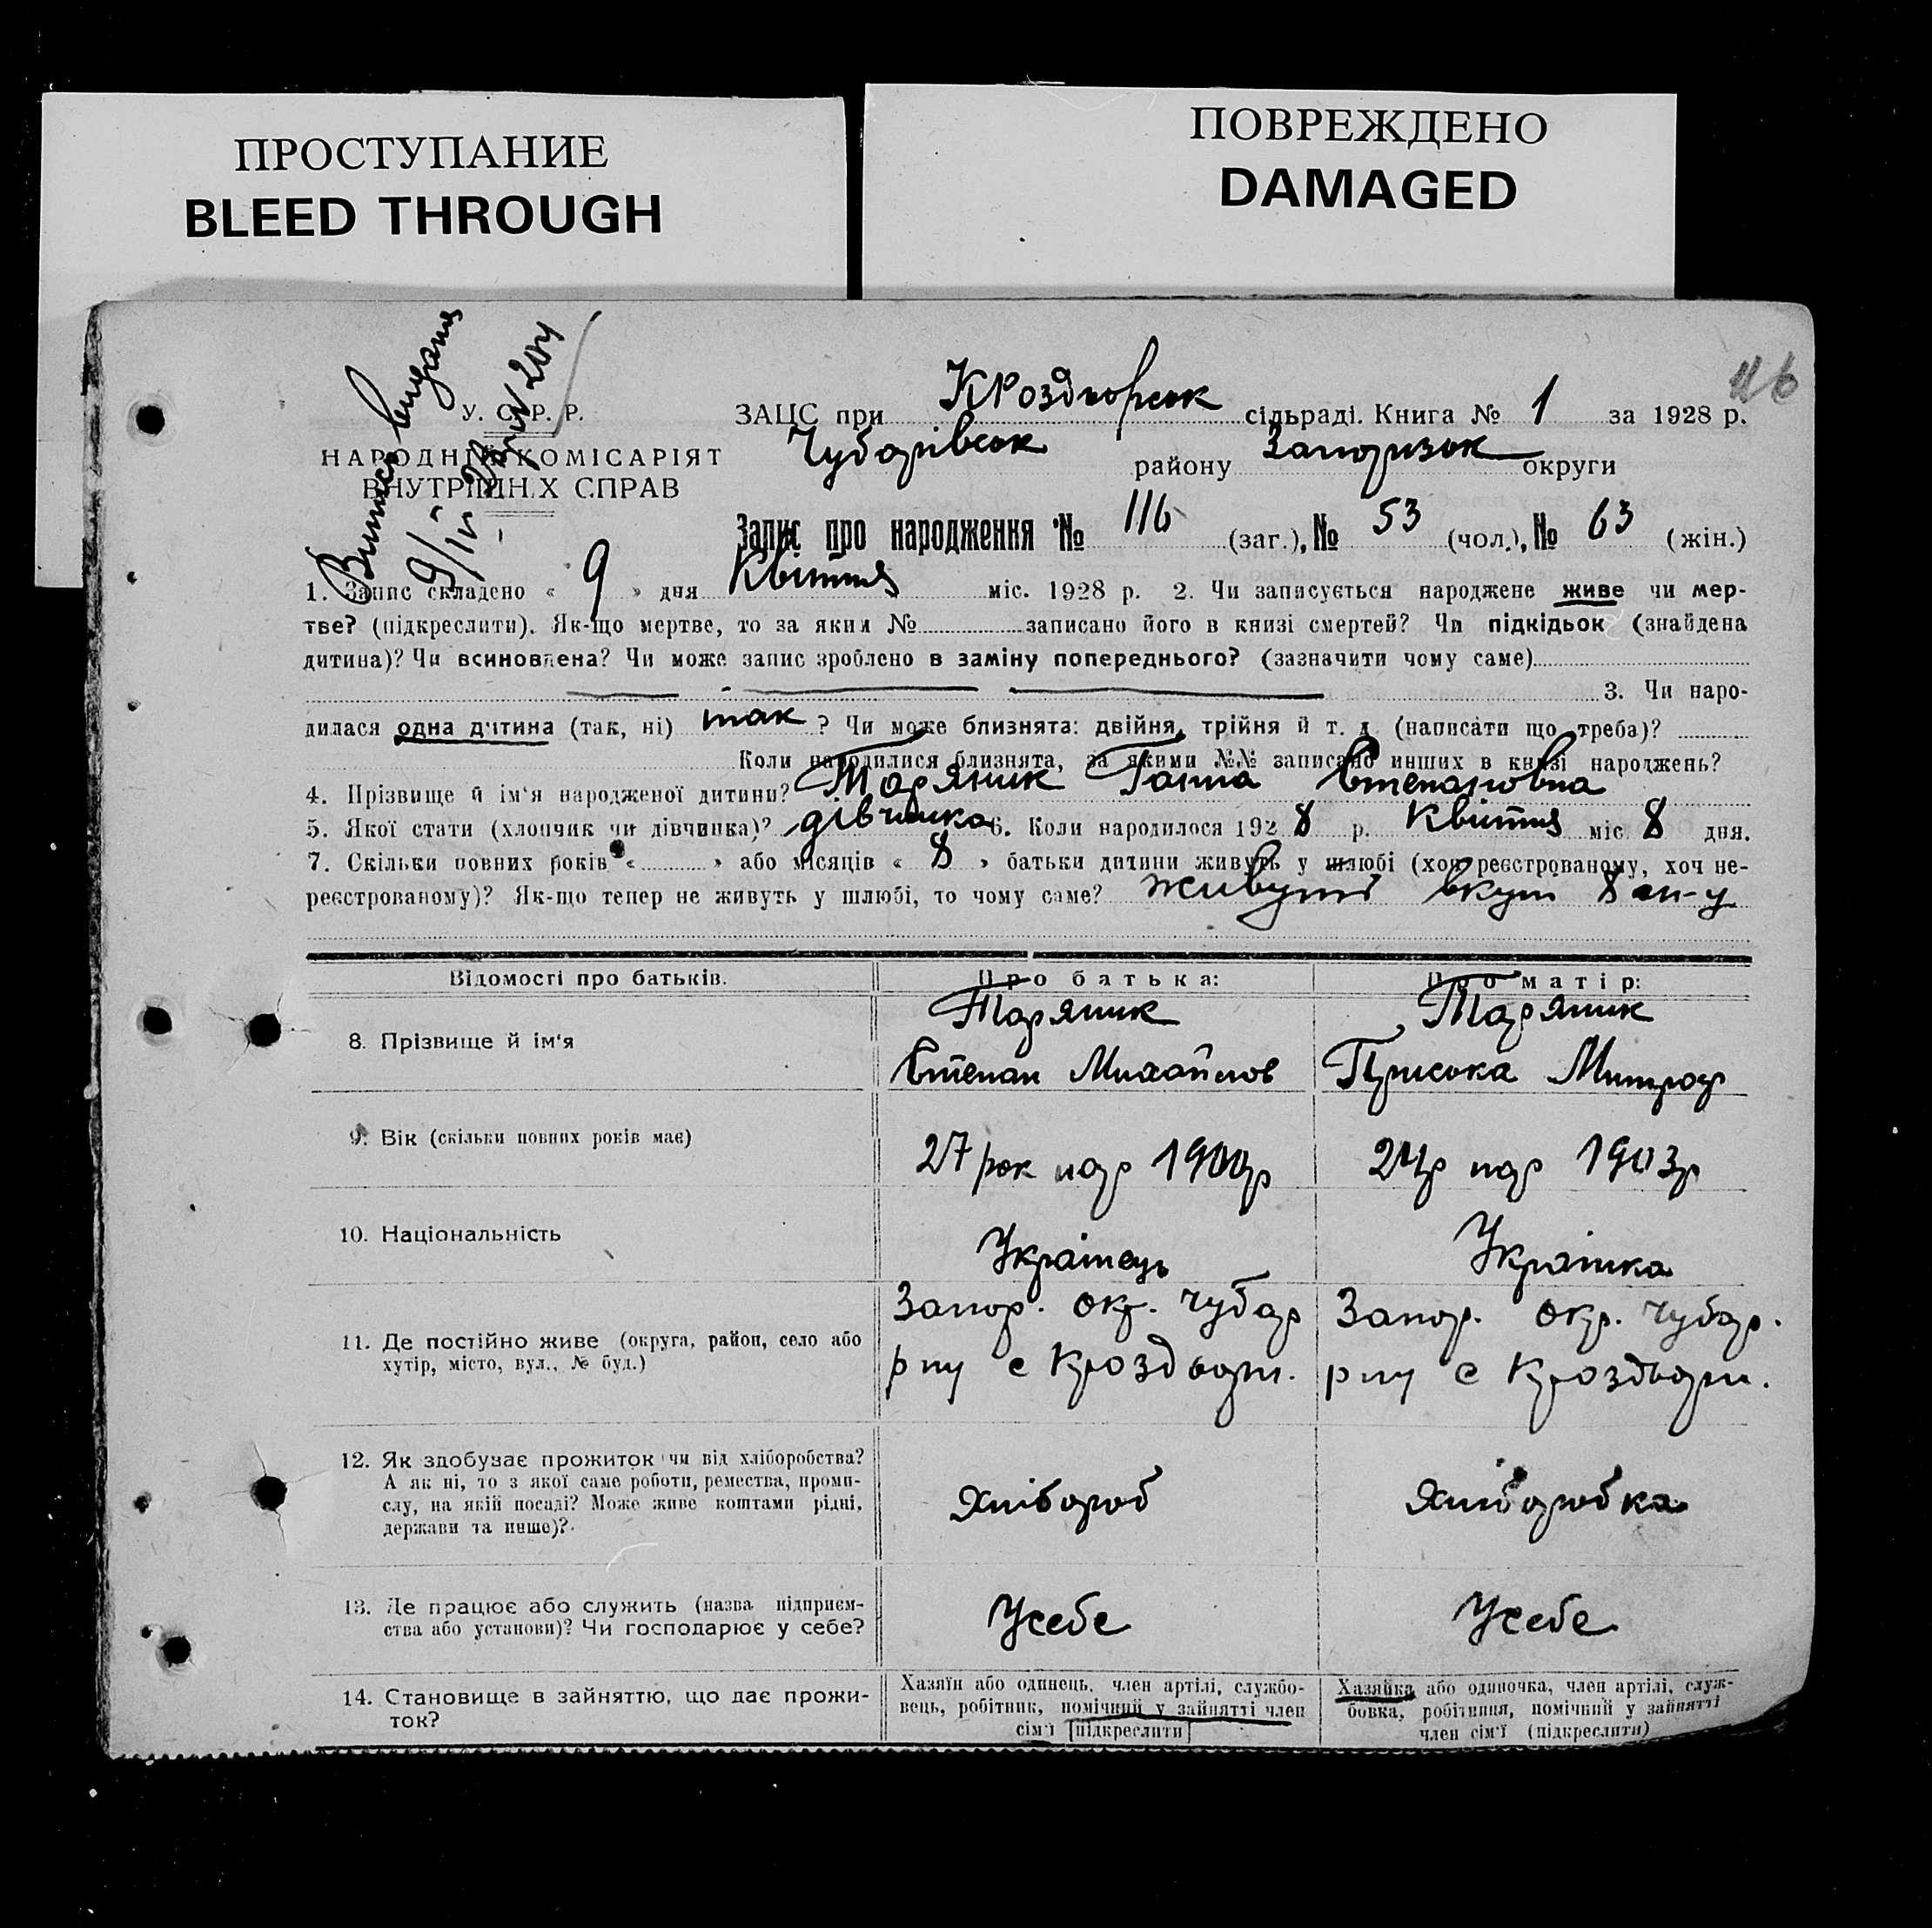 ПРОСТУПАНИЕ
BLEED THROUGH
ПОВРЕЖДЕНО
DAMAGED
116
Випись видана
9/IV 28 р. № 204
У. С. Р. Р.
НАРОДНІЙ КОМІСАРІЯТ
ВНУТРІШНІХ СПРАВ
ЗАЦС при КРоздорськ сільраді. Книга № 1 за 1928 р.
Чубарівськ району Запоризьк округи
Запис про народження № 116 (заг.), № 53 (чол.), № 63 (жін.)
1. Запис складено « 9 » дня Квітня міс. 1928 р. 2. Чи записується народжене живе чи мер-
тве? (підкреслити). Як-що мертве, то за яким № записано його в книзі смертей? Чи підкідьок (знайдена
дитина)? Чи всиновлена? Чи може запис зроблено в заміну попереднього? (зазначити чому саме)
3. Чи наро-
дилася одна дитина (так, ні) так ? Чи може близнята: двійня, трійня й т. д. (написати що треба)?
Коли народилися близнята, за якими №№ записано инших в книзі народжень?
4. Прізвище й ім'я народженої дитини? Таряник Ганна Степановна
5. Якої стати (хлопчик чи дівчинка)? дівчинка 6. Коли народилося 1928 р. Квітня міс 8 дня.
7. Скільки повних років « » або місяців « 8 » батьки дитини живуть у шлюбі (хоч реєстрованому, хоч не-
реєстрованому)? Як-що тепер не живуть у шлюбі, то чому саме? живуть вкупі 8 м-у
Відомості про батьків.
Про батька:
Про матір:
8. Прізвище й ім'я
Таряник
Степан Михайлов
Таряник
Приська Митроф
9. Вік (скільки повних років має)
27 рок нар 1900р
24р нар 1903р
10. Національність
Українець
Українка
11. Де постійно живе (округа, район, село або
хутір, місто, вул., № буд.)
Запор. окр. Чубар
р ну с Кроздорн.
Запор. окр. Чубар.
р ну с Кроздорн.
12. Як здобуває прожиток чи від хліборобства?
А як ні, то з якої саме роботи, ремества, проми-
слу, на якій посаді? Може живе коштами рідні,
держави та инше)?
Хлібороб
Хліборобка
13. Де працює або служить (назва підприєм-
ства або установи)? Чи господарює у себе?
Усебе
Усебе
14. Становище в зайняттю, що дає прожи-
ток?
Хазяїн або одинець, член артілі, службо-
вець, робітник, помічний у зайнятті член
сім'ї [підкреслити]
Хазяйка або одиночка, член артілі, служ-
бовка, робітниця, помічний у зайнятті
член сім'ї (підкреслити)